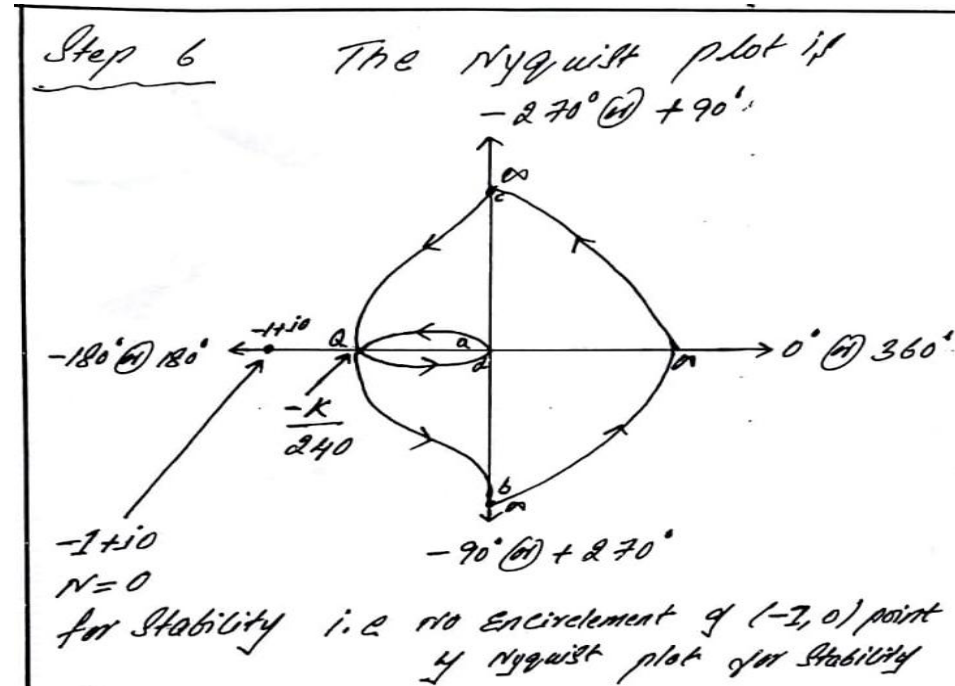 Step 6 The Nyquist plot is
-270° (or) +90°
∞
c
-1+j0
Q
a
d
-180° (or) 180°
0° (or) 360°
∞
-K
240
b
∞
-1+j0
-90° (or) +270°
N=0
for Stability i.e no Encirclement of (-1, 0) point
by Nyquist plot for Stability